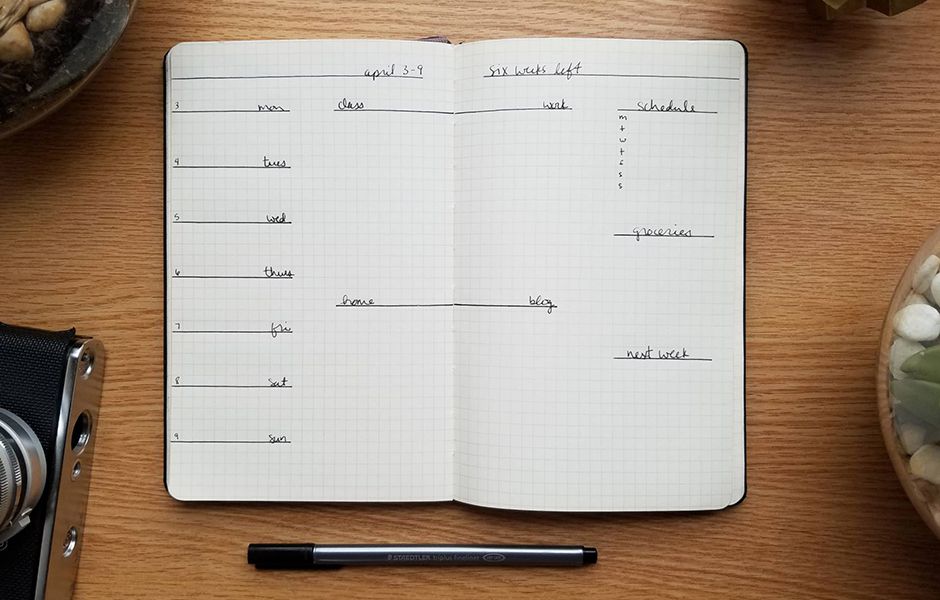 april 3-9
six weeks left
3 mon
4 tues
5 wed
6 thurs
7 fri
8 sat
9 sun
class
home
work
blog
schedule
m
t
w
t
f
s
s
groceries
next week
STAEDTLER triplus fineliner